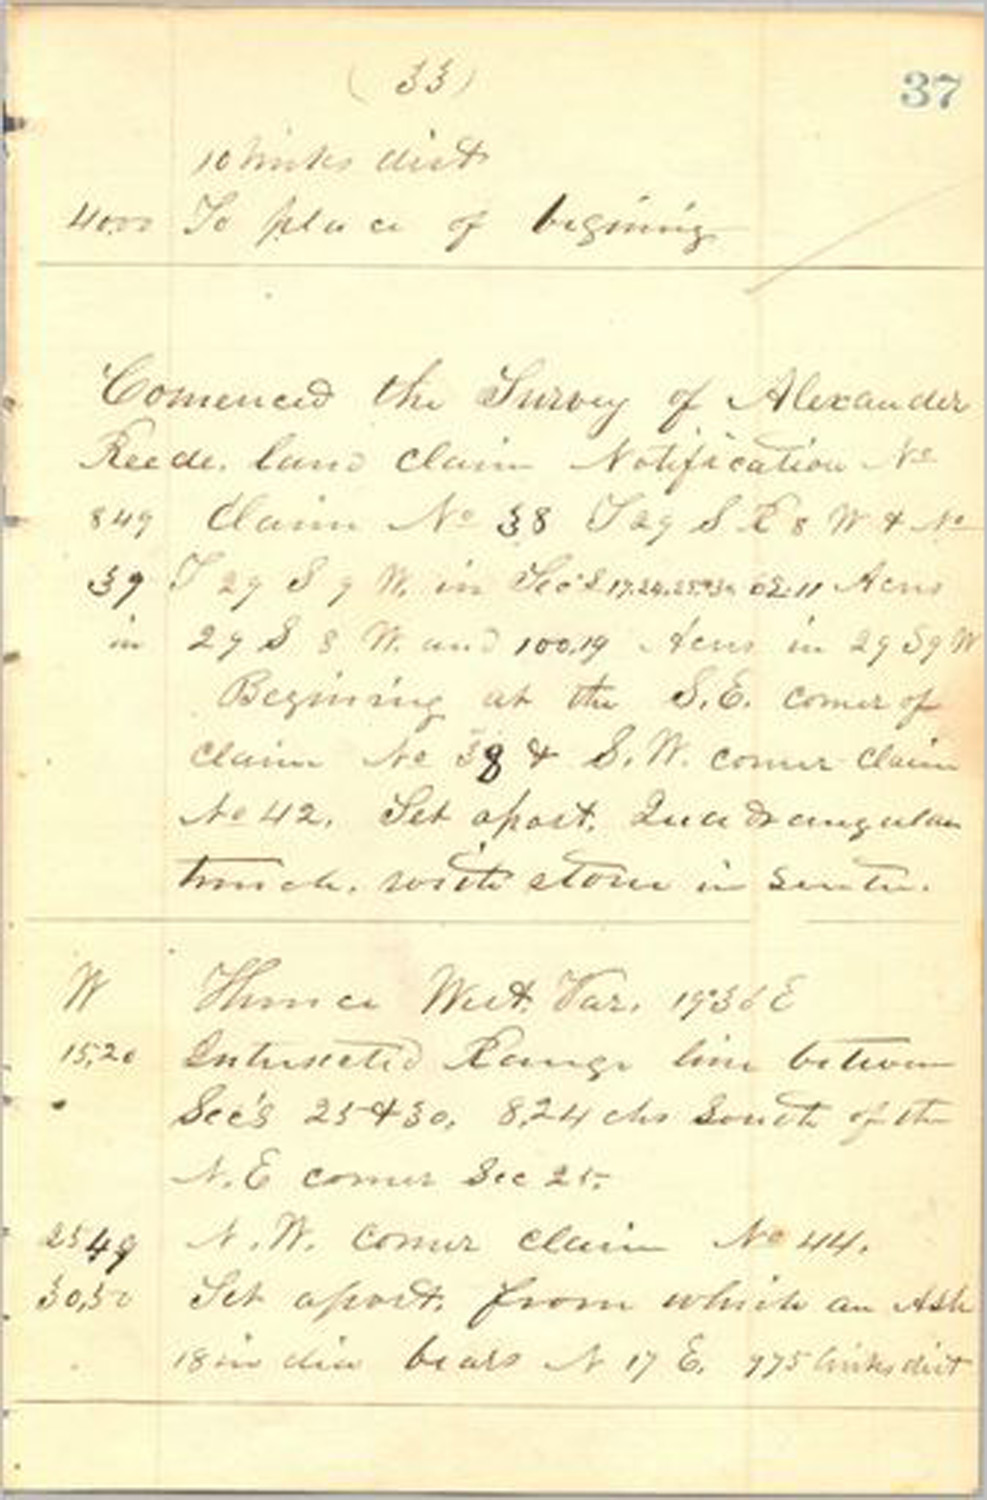 (33)
37
10 links dist
40.00 To place of begining
Comenced the Survey of Alexander
Reede. land claim Notification No
849 Claim No 38 T 29 S R 8 W & No
39 T 29 S 9 W. in Sec's 62.11 Acres
in 29 S 8 W. and 100.19 Acres in 29 S 9 W
Begining at the S.E. corner of
claim No 38 & S.W. corner claim
No 42. Set a post. Quadrangular
trench. with stone in senter.
W Thence West. Var. 19° 36 E
15.20 Intersected Range line between
Sec's 25 & 30. 8.24 chs South of the
N.E corner Sec 25.
25 49 N.W. corner claim No 44.
30,50 Set a post. from which an Ash
18 in dia bears N 17 E. 775 links dist